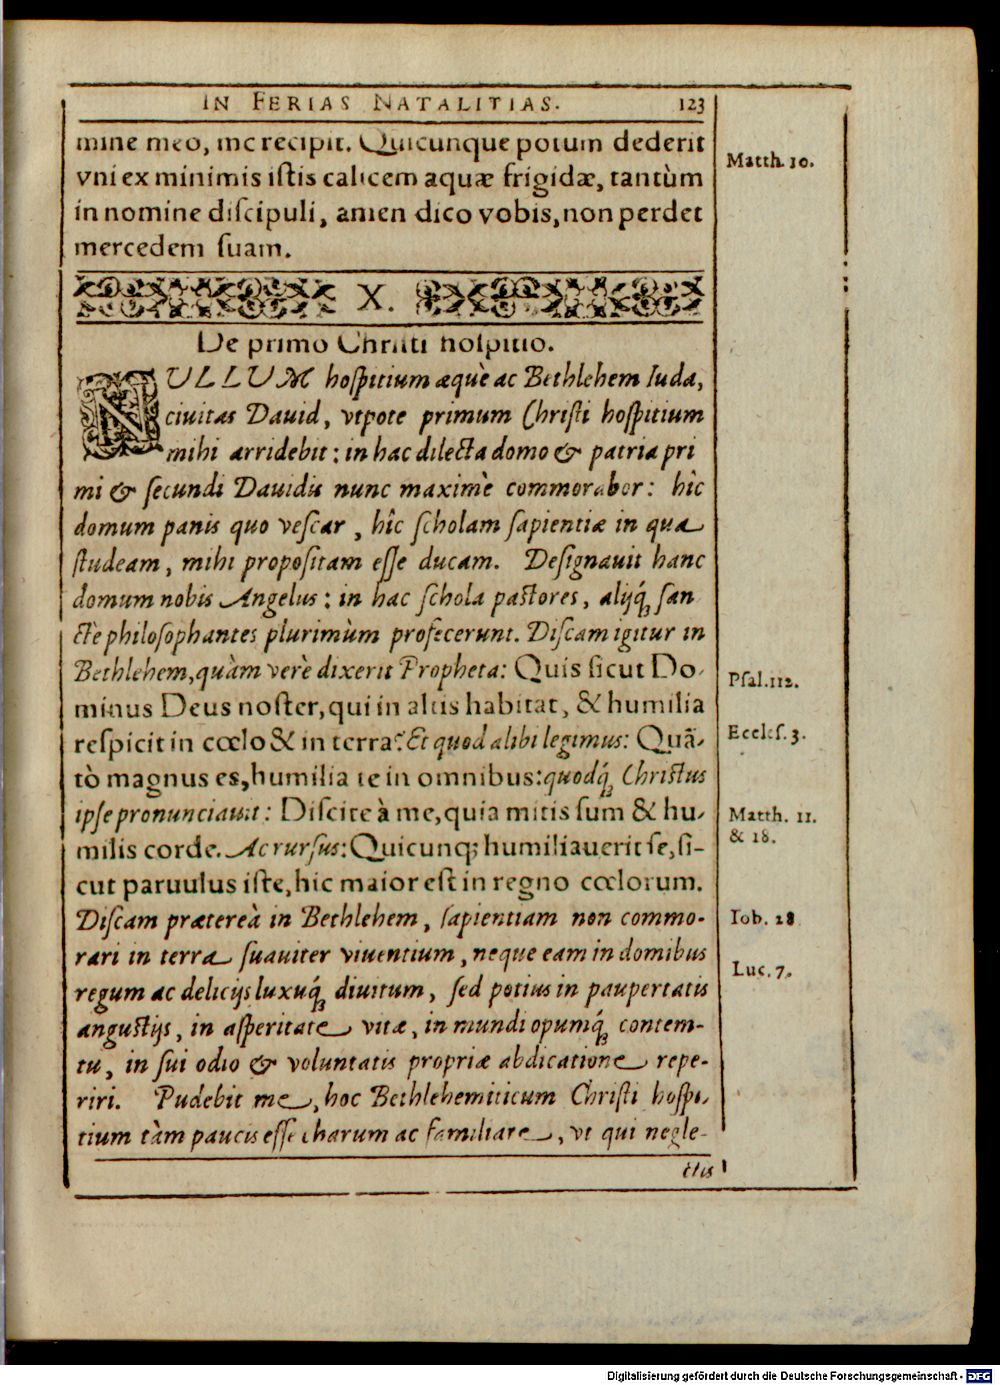 IN FERIAS NATALITIAS. 123
mine meo, me recipit. Quicunque potum dederit
vni ex minimis iſtis calicem aquæ frigidæ, tantùm
in nomine diſcipuli, amen dico vobis, non perdet
mercedem ſuam.
Matth. 10.
X.
De primo Chriſti hoſpitio.
NULLUM hoſpitium æquè ac Bethlehem Iuda,
ciuitas Dauid, vtpote primum Chriſti hoſpitium
mihi arridebit: in hac dilecta domo & patria pri
mi & ſecundi Dauidis nunc maximè commorabor: hîc
domum panis quo veſcar, hîc ſcholam ſapientiæ in qua
ſtudeam, mihi propoſitam eſſe ducam. Deſignauit hanc
domum nobis Angelus: in hac ſchola paſtores, alijq́; ſan
ctè philoſophantes plurimùm profecerunt. Diſcam igitur in
Bethlehem, quàm verè dixerit Propheta: Quis ſicut Do-
minus Deus noſter, qui in altis habitat, & humilia
reſpicit in cœlo & in terra? Et quod alibi legimus: Quã-
tò magnus es, humilia te in omnibus: quodq́; Chriſtus
ipſe pronunciauit: Diſcite à me, quia mitis ſum & hu-
milis corde. Ac rurſus: Quicunq; humiliauerit ſe, ſi-
cut paruulus iſte, hic maior eſt in regno cœlorum.
Diſcam prætereà in Bethlehem, ſapientiam non commo-
rari in terra ſuauiter viuentium, neque eam in domibus
regum ac delicijs luxuq́; diuitum, ſed potius in paupertatis
anguſtijs, in aſperitate vitæ, in mundi opumq́; contem-
tu, in ſui odio & voluntatis propriæ abdicatione repe-
riri. Pudebit me, hoc Bethlehemiticum Chriſti hoſpi-
tium tàm paucis eſſe charum ac familiare, vt qui negle-
ctis
Pſal. 112.
Eccleſ. 3.
Matth. 11.
& 18.
Iob. 28
Luc. 7.
Digitalisierung gefördert durch die Deutsche Forschungsgemeinschaft - DFG